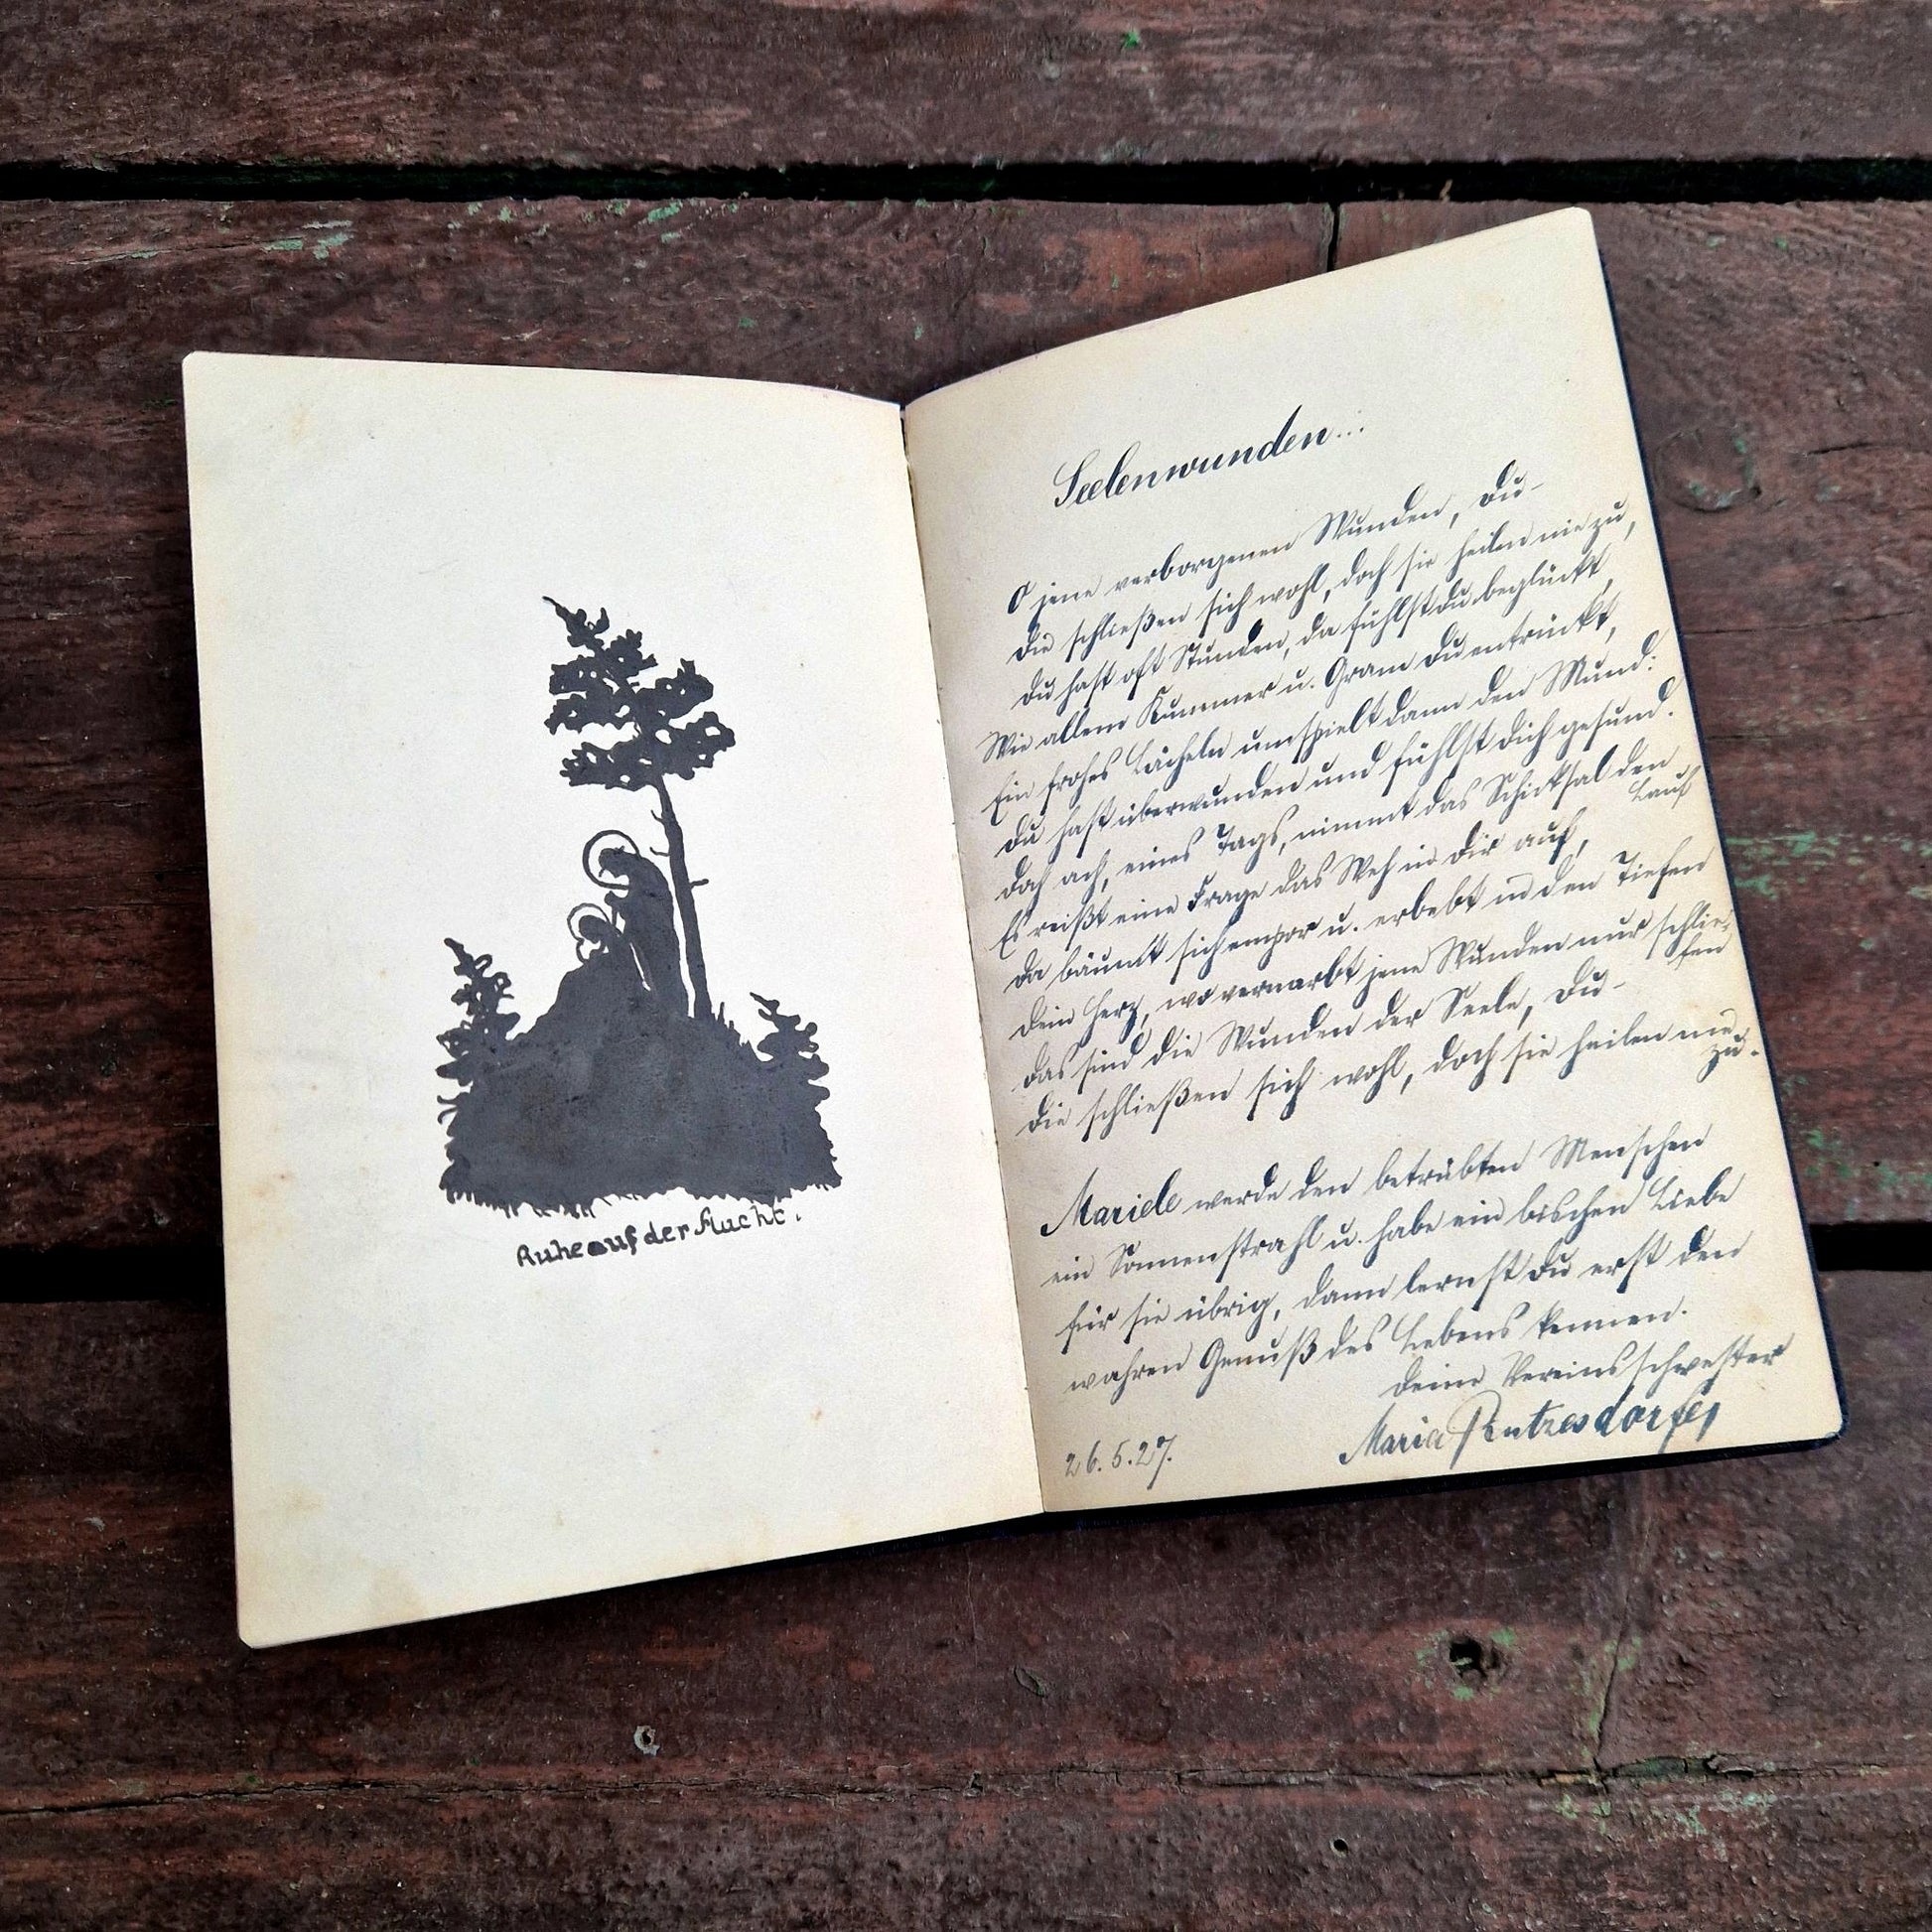 Ruhe auf der Flucht.
Seelenwunden...
O jene verborgenen Wunden, Du-
Die schließen sich wohl, doch sie heilen nie zu,
Du hast oft Stunden, da fühlst du beglückt,
Wie allem Kummer u. Gram Du entrückt,
Ein frohes Lächeln umspielt dann den Mund:
Du hast überwunden und fühlst dich gesund.
Doch ach, eines Tags, nimmt das Schicksal den
Lauf
Es reißt eine Frage das Weh in dir auf,
Da bäumt sich empor u. erbebt in den Tiefen
Dein Herz, wo vernarbt jene Wunden nur schlie-
fen
Das sind die Wunden der Seele, Du-
Die schließen sich wohl, doch sie heilen nie
zu.
Mariele werde den betrübten Menschen
ein Sonnenstrahl u. habe ein bischen Liebe
für sie übrig, dann lernst Du erst den
wahren Genuß des Lebens kennen.
Deine Vereinsschwester
Maria
26.5.27.